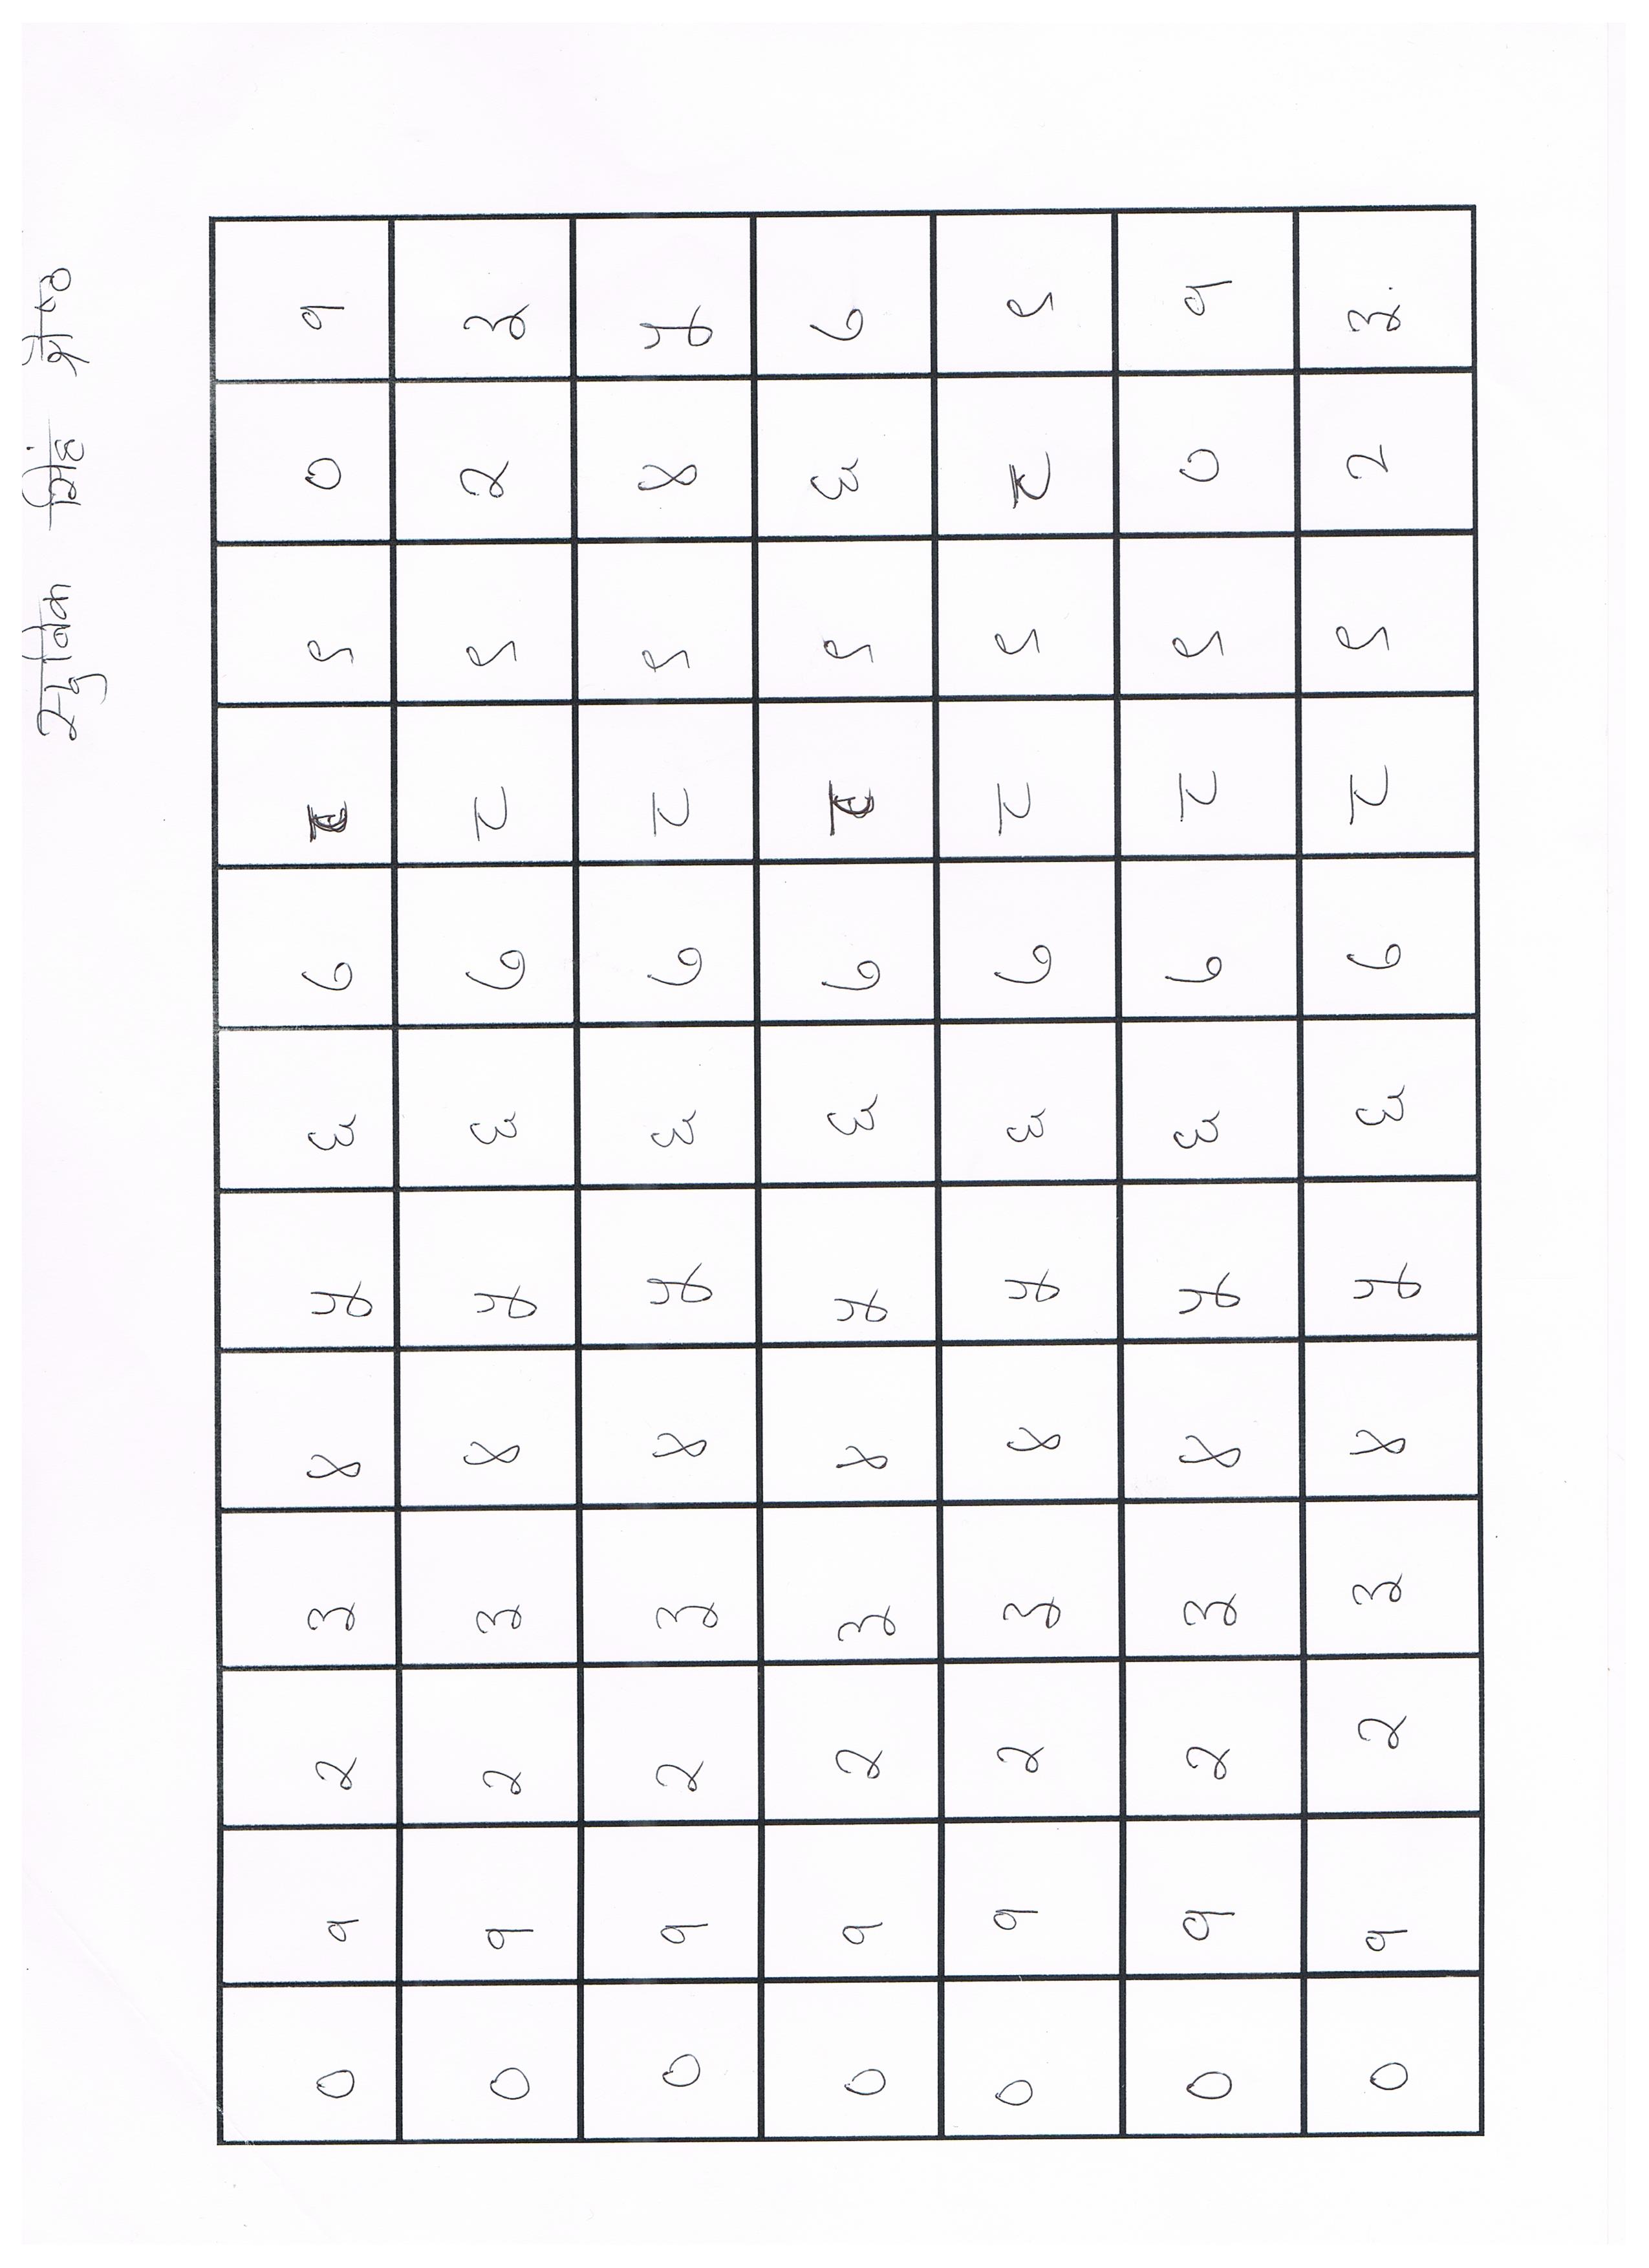 सिंह श्रेष्ठ
० १ २ ३ ४ ५ ६ ७ ८ ९ ० १
० १ २ ३ ४ ५ ६ ७ ८ ९ २ ३
० १ २ ३ ४ ५ ६ ७ ८ ९ ४ ५
० १ २ ३ ४ ५ ६ ७ ८ ९ ६ ७
० १ २ ३ ४ ५ ६ ७ ८ ९ ८ ९
० १ २ ३ ४ ५ ६ ७ ८ ९ ० १
० १ २ ३ ४ ५ ६ ७ ८ ९ २ ३